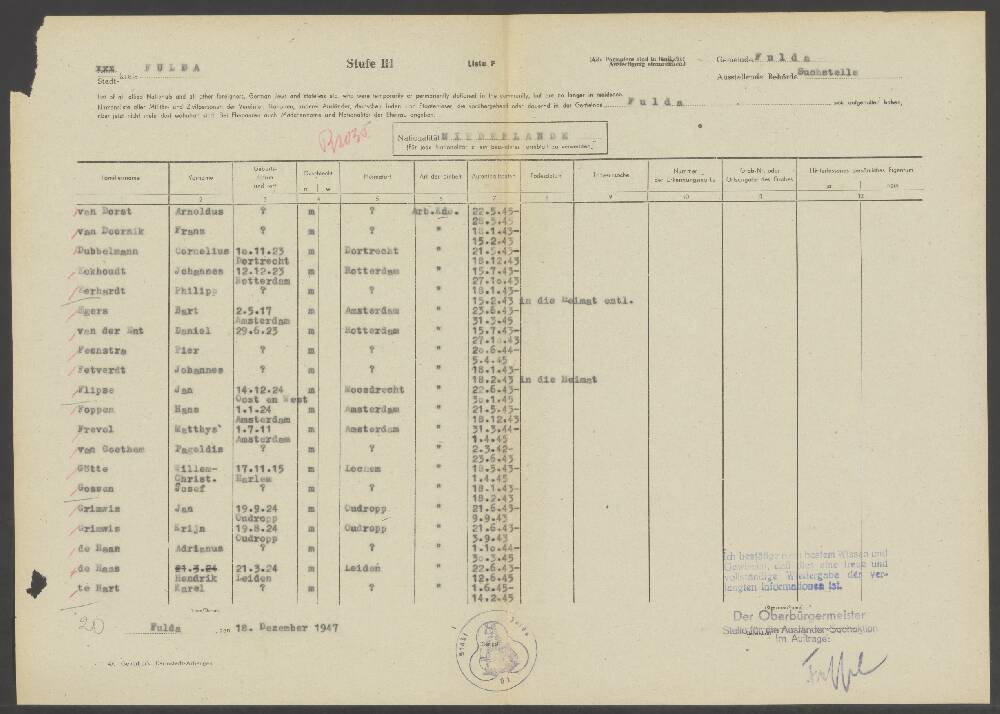 xxx FULDA Stufe III Liste F (Alle Formulare sind in fünffacher Gemeinde Fulda
Stadt- kreis Ausfertigung einzureichen) Ausstellende Behörde Suchstelle
List of all allied Nationals and all other foreigners, German Jews and stateless etc. who were temporarily or permanently stationed in the community, but are no longer in residence.
Namensliste aller Militär- und Zivilpersonen der Vereinten Nationen, anderer Ausländer, deutscher Juden und Staatenloser, die vorübergehend oder dauernd in der Gemeinde Fulda sich aufgehalten haben,
aber jetzt nicht mehr dort wohnhaft sind. Bei Ehepaaren auch Mädchenname und Nationalität der Ehefrau angeben.
Nationalität NIEDERLANDE
(Für jede Nationalität ist ein besonderes Formblatt zu verwenden)
Familienname Vorname Geburts-datum und -ort Geschlecht m w Heimatort Art der Einheit Aufenthaltszeiten Todesdatum Todesursache Nummer der Erkennungsmarke Grab-Nr. oder Ortsangabe des Grabes Hinterlassenes persönliches Eigentum ja nein
2 3 4 5 6 7 8 9 10 11 12
van Dorst Arnoldus ? m ? Arb.Kdo. 22.5.45-
28.5.45
van Doornik Frans ? m ? " 18.1.43-
15.2.43
Dubbelmann Cornelius 10.11.23 m Dortrecht " 21.5.43-
Dortrecht 18.12.43
Eekhoudt Johannes 12.12.23 m Rotterdam " 15.7.43-
Rotterdam 27.10.43
Eerhardt Philipp ? m ? " 18.1.43-
15.2.43 in die Heimat entl.
Egers Bart 2.5.17 m Amsterdam " 23.6.43-
Amsterdam 31.3.45
van der Ent Daniel 29.6.23 m Rotterdam " 15.7.43-
27.10.43
Feenstra Pier ? m ? " 20.6.44-
5.4.45
Fetverdt Johannes ? m ? " 18.1.43-
18.2.43 in die Heimat
Flipse Jan 14.12.24 m Moosdrecht " 22.6.43-
Oost en West 30.1.45
Foppen Hans 1.1.24 m Amsterdam " 21.5.43-
Amsterdam 18.12.43
Frevol Matthys' 1.7.11 m Amsterdam " 31.3.44-
Amsterdam 1.4.45
van Goethem Pageldis ? m ? " 2.3.42-
23.6.43
Götte Willem- 17.11.15 m Lochem " 18.5.43-
Christ. Harlem 1.4.45
Gossen Josef ? m ? " 18.1.43-
18.2.43
Grimwis Jan 19.9.24 m Oudropp " 21.6.43-
Oudropp 9.9.43
Grimwis Krijn 19.8.24 m Oudropp " 21.6.43-
Oudropp 3.9.43
de Haan Adrianus ? m ? " 1.10.44-
30.3.45
de Haas 21.3.24 21.3.24 m Leiden " 22.6.43-
Hendrik Leiden 12.6.45
te Hart Karel ? m ? " 1.6.45-
14.2.45
Ich bestätige nach bestem Wissen und
Gewissen, daß dies eine treue und
vollständige Wiedergabe der ver-
langten Informationen ist.
20 Fulda , den 18. Dezember 1947
Der Oberbürgermeister
Stelle für die Ausländer-Suchaktion
Im Auftrage:
Stadt Fulda